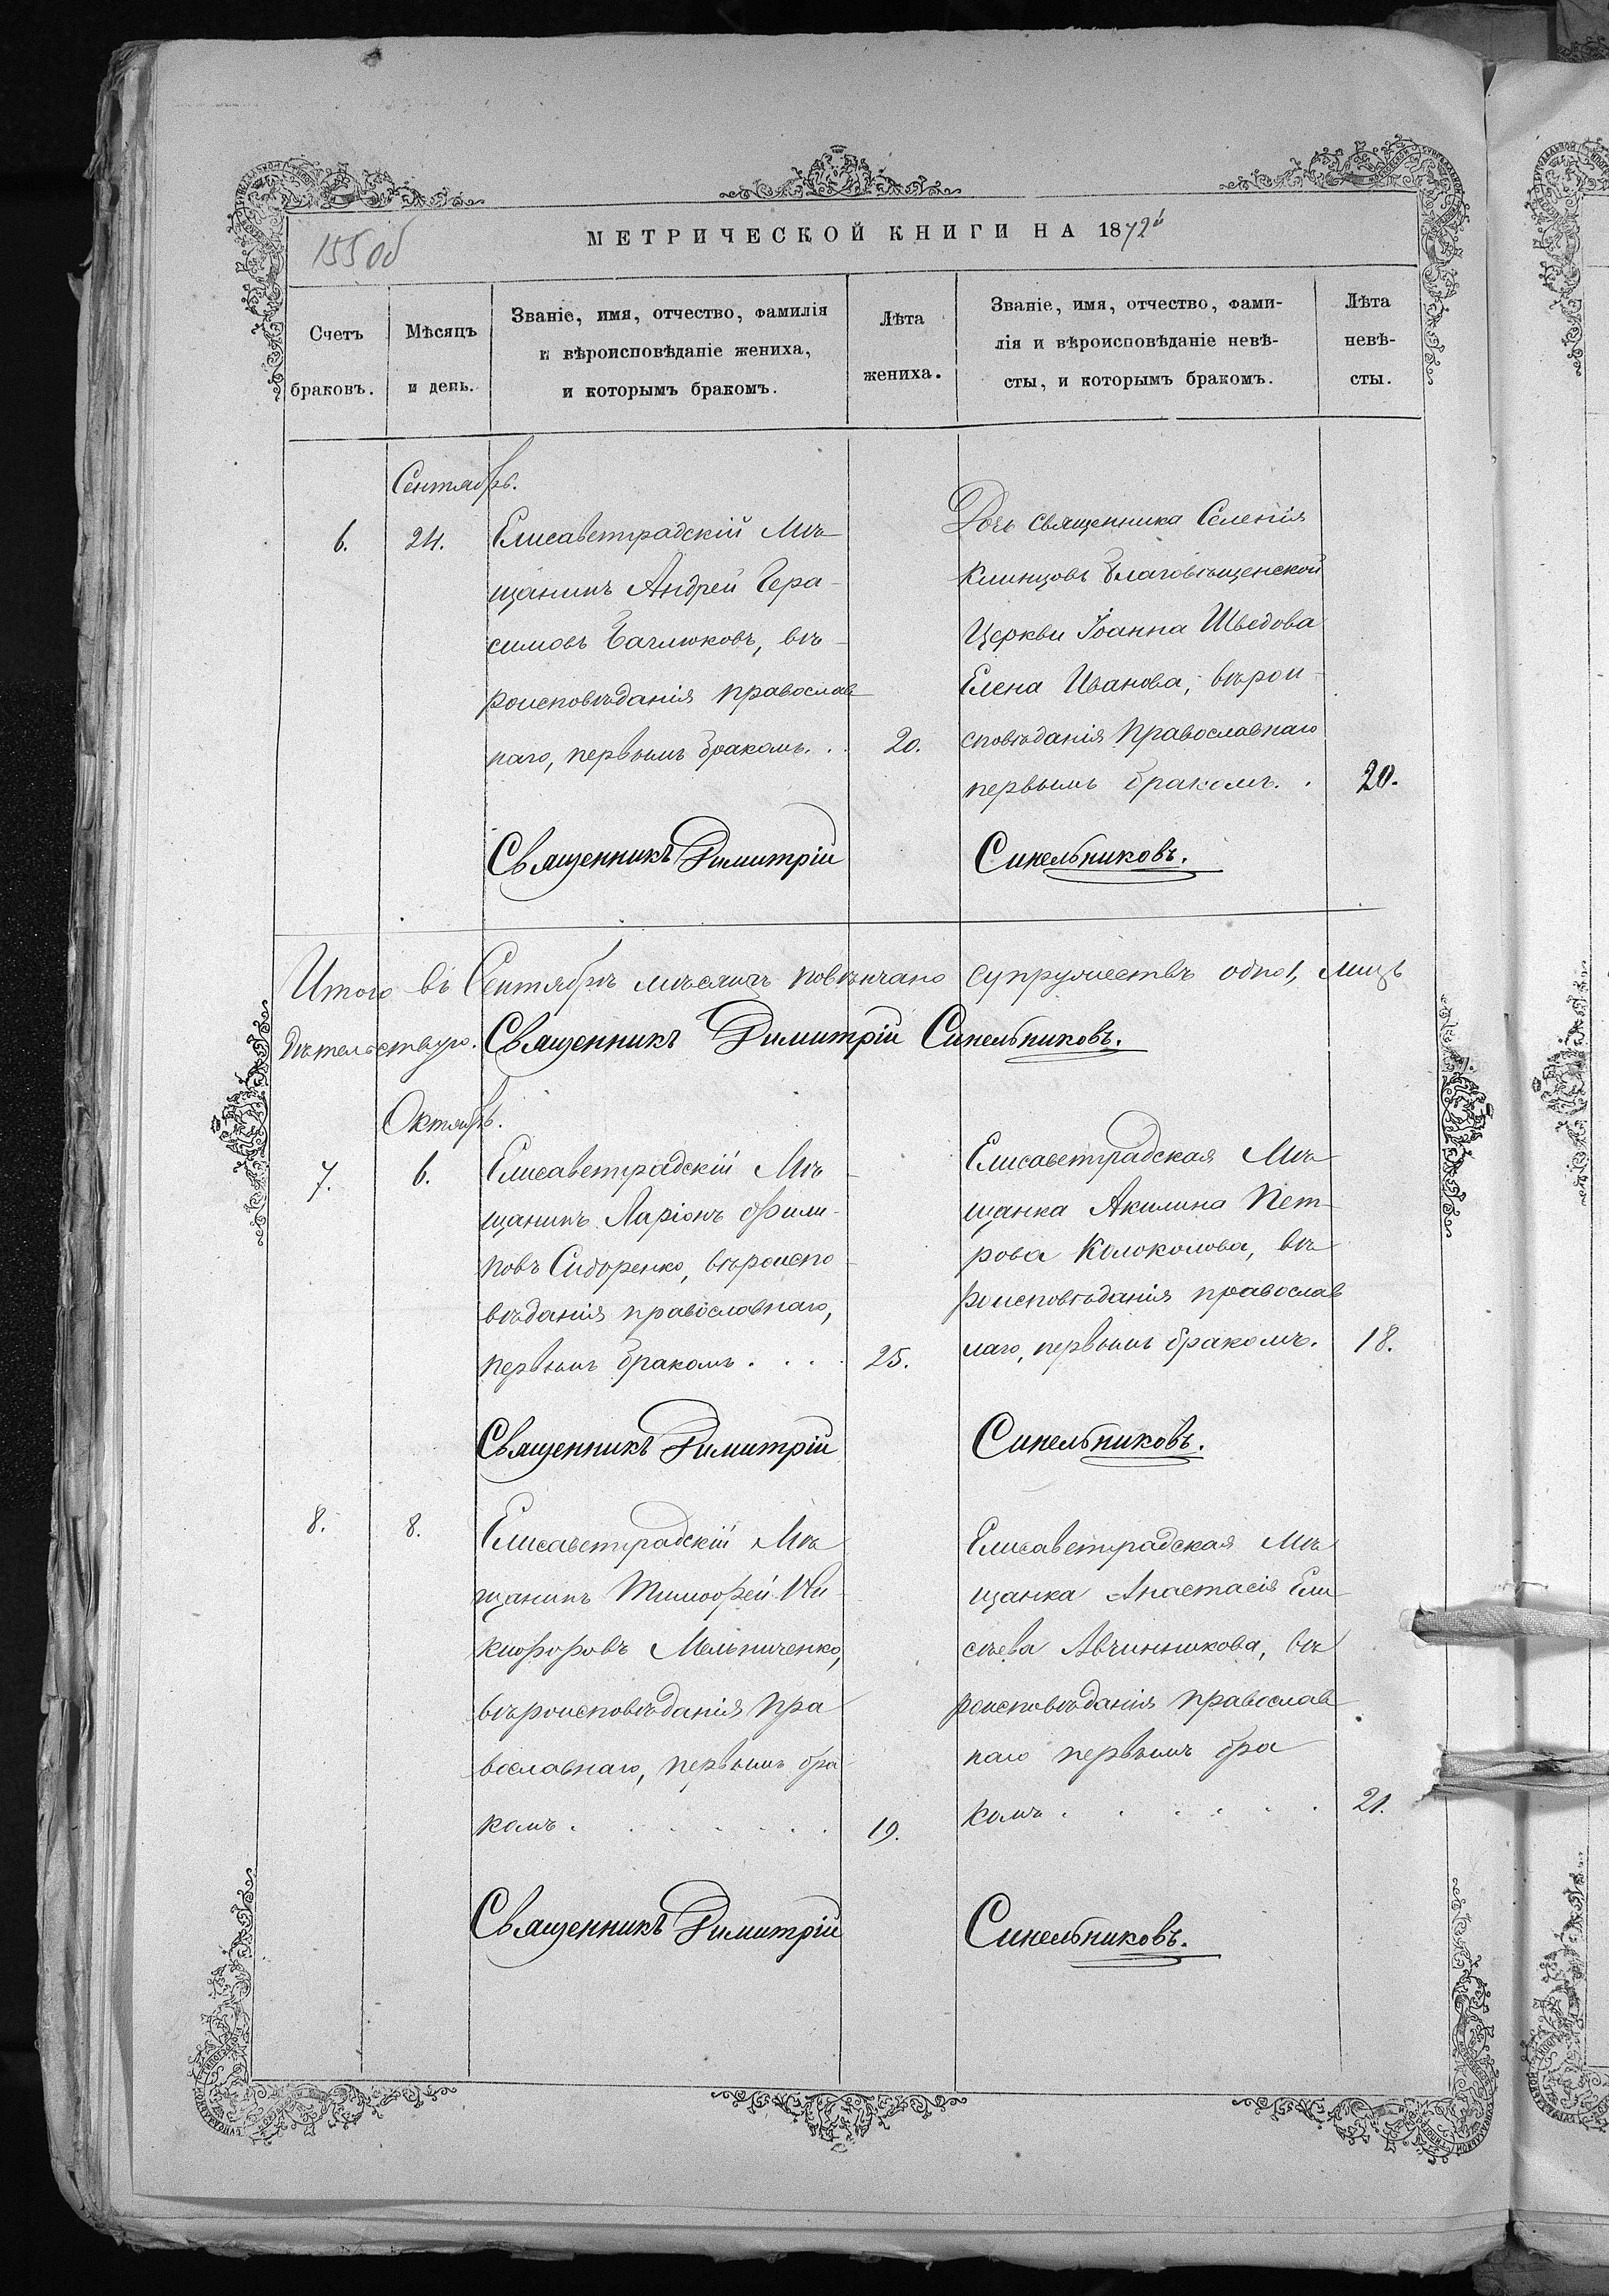 155 об
МЕТРИЧЕСКОЙ КНИГИ НА 1872й
Счетъ
браковъ.
Мѣсяцъ
и день.
Званіе, имя, отчество, фамилія
и вѣроисповѣданіе жениха,
и которымъ бракомъ.
Лѣта
жениха.
Званіе, имя, отчество, фами-
лія и вѣроисповѣданіе невѣ-
сты, и которымъ бракомъ.
Лѣта
невѣ-
сты.
Сентябрь.
6.
24.
Елисаветградскій Мѣ-
щанинъ Андрей Гера-
симовъ Баглюковъ, вѣ-
роисповѣданія православ
наго, первымъ бракомъ. . .
20.
Дочь священника Селенія
Клинцовъ Благовѣщенской
Церкви Іоанна Шведова
Елена Иванова, вѣрои-
сповѣданія Православнаго
первымъ бракомъ. .
20.
Священникъ Димитрій
Синельниковъ.
Итого въ Сентябрѣ мѣсяцѣ повѣнчано супружествъ одно 1, лицъ
Священникъ Димитрій Синельниковъ.
Октябрь.
7.
6.
Елисаветградскій Мѣ-
щанинъ Ларіонъ Фили-
повъ Сидоренко, вѣроиспо-
вѣданія православнаго,
первымъ бракомъ . . . .
25.
Елисаветградская Мѣ
щанка Акилина Пет-
рова Колоколова, вѣ
роисповѣданія православ
наго, первымъ бракомъ.
18.
Священникъ Димитрій
Синельниковъ.
8.
8.
Елисаветградскій Мѣ
щанинъ Тимофей Ни-
кифоровъ Мельниченко,
вѣроисповѣданія пра
вославнаго, первымъ бра
комъ. . . . . . .
19.
Елисаветградская Мѣ
щанка Анастасія Ели
сѣева Авчинникова, вѣ
роисповѣданія православ
наго первымъ бра
комъ . . . . . .
21.
Священникъ Димитрій
Синельниковъ.